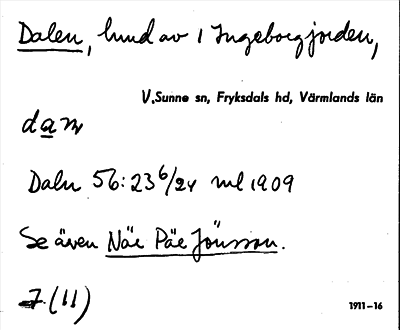 Dalen, hmd av 1 Ingeborgjorden,
V. Sunne sn, Fryksdals hd, Värmlands län
dan
Daln 56:23 6/24 ml 1909
Se även Näe Päe Jönsson.
J. (11)
1911–16